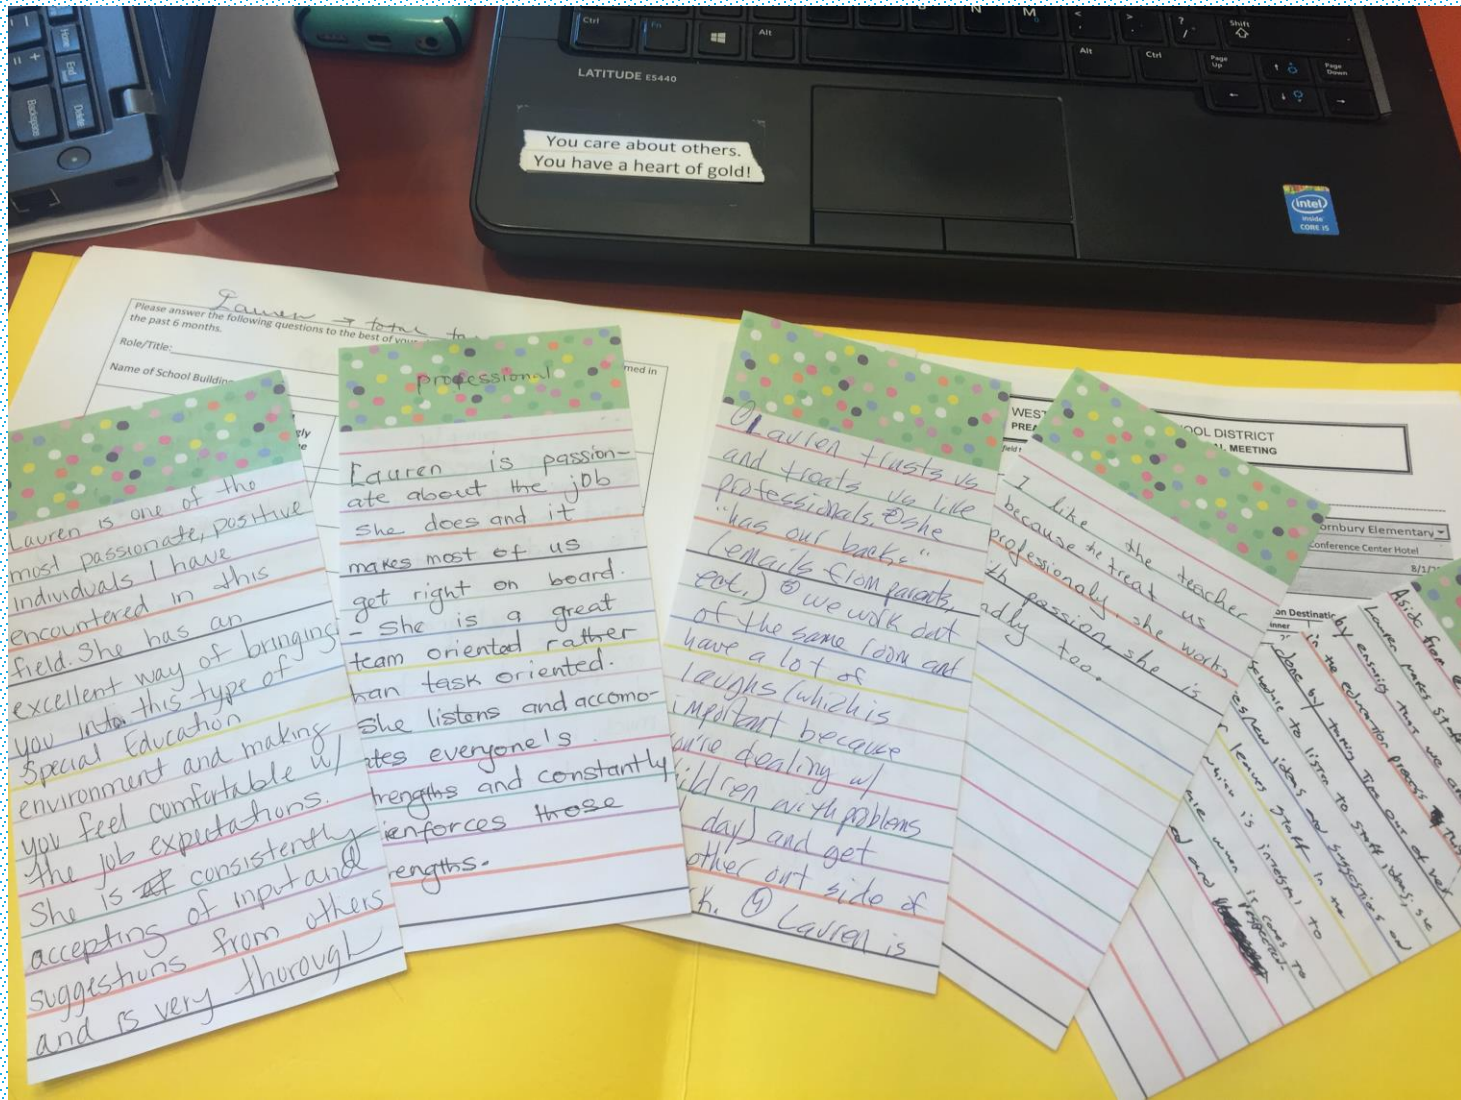 Home
End
Delete
Backspace
Ctrl
Fn
Alt
N
M
Alt
Ctrl
?
/
Shift
Page Up
Page Down
LATITUDE E5440
You care about others.
You have a heart of gold!
intel
inside
CORE i5
Lauren → total
Please answer the following questions to the best of your
med in
the past 6 months.
Role/Title:
Name of School Building
Lauren is one of the
most passionate, positive
individuals I have
encountered in this
field. She has an
excellent way of bringing
you into this type of
Special Education
environment and making
you feel comfortable w/
the job expectations.
She is consistently
accepting of input and
suggestions from others
and is very thorough
professional
Lauren is passion-
ate about the job
she does and it
makes most of us
get right on board.
- She is a great
team oriented rather
han task oriented.
She listens and accomo-
ates everyone's
trengths and constantly
einforces those
rengths.
① Lauren trusts us
and treats us like
professionals. ② she
"has our backs"
(emails from parents,
ect.) ③ we work out
of the same room and
have a lot of
laughs (which is
important because
you're dealing w/
ildren with problems
day) and get
other out side of
k. ④ Lauren is
WEST
OOL DISTRICT
PREA
L MEETING
I like the teacher
because she treat us
professionaly. she works
th passion, she is
adly too.
ornbury Elementary
Conference Center Hotel
8/1/
on Destinatic
inner
Aside from
Lauren makes staff
by ensuring that we are
in the education process
done by taking time out of her
schedule to listen to staff ideas, she
es/new ideas and suggestions on
r leaves staff in the
which is integral to
ale when it comes to
ed and respected.